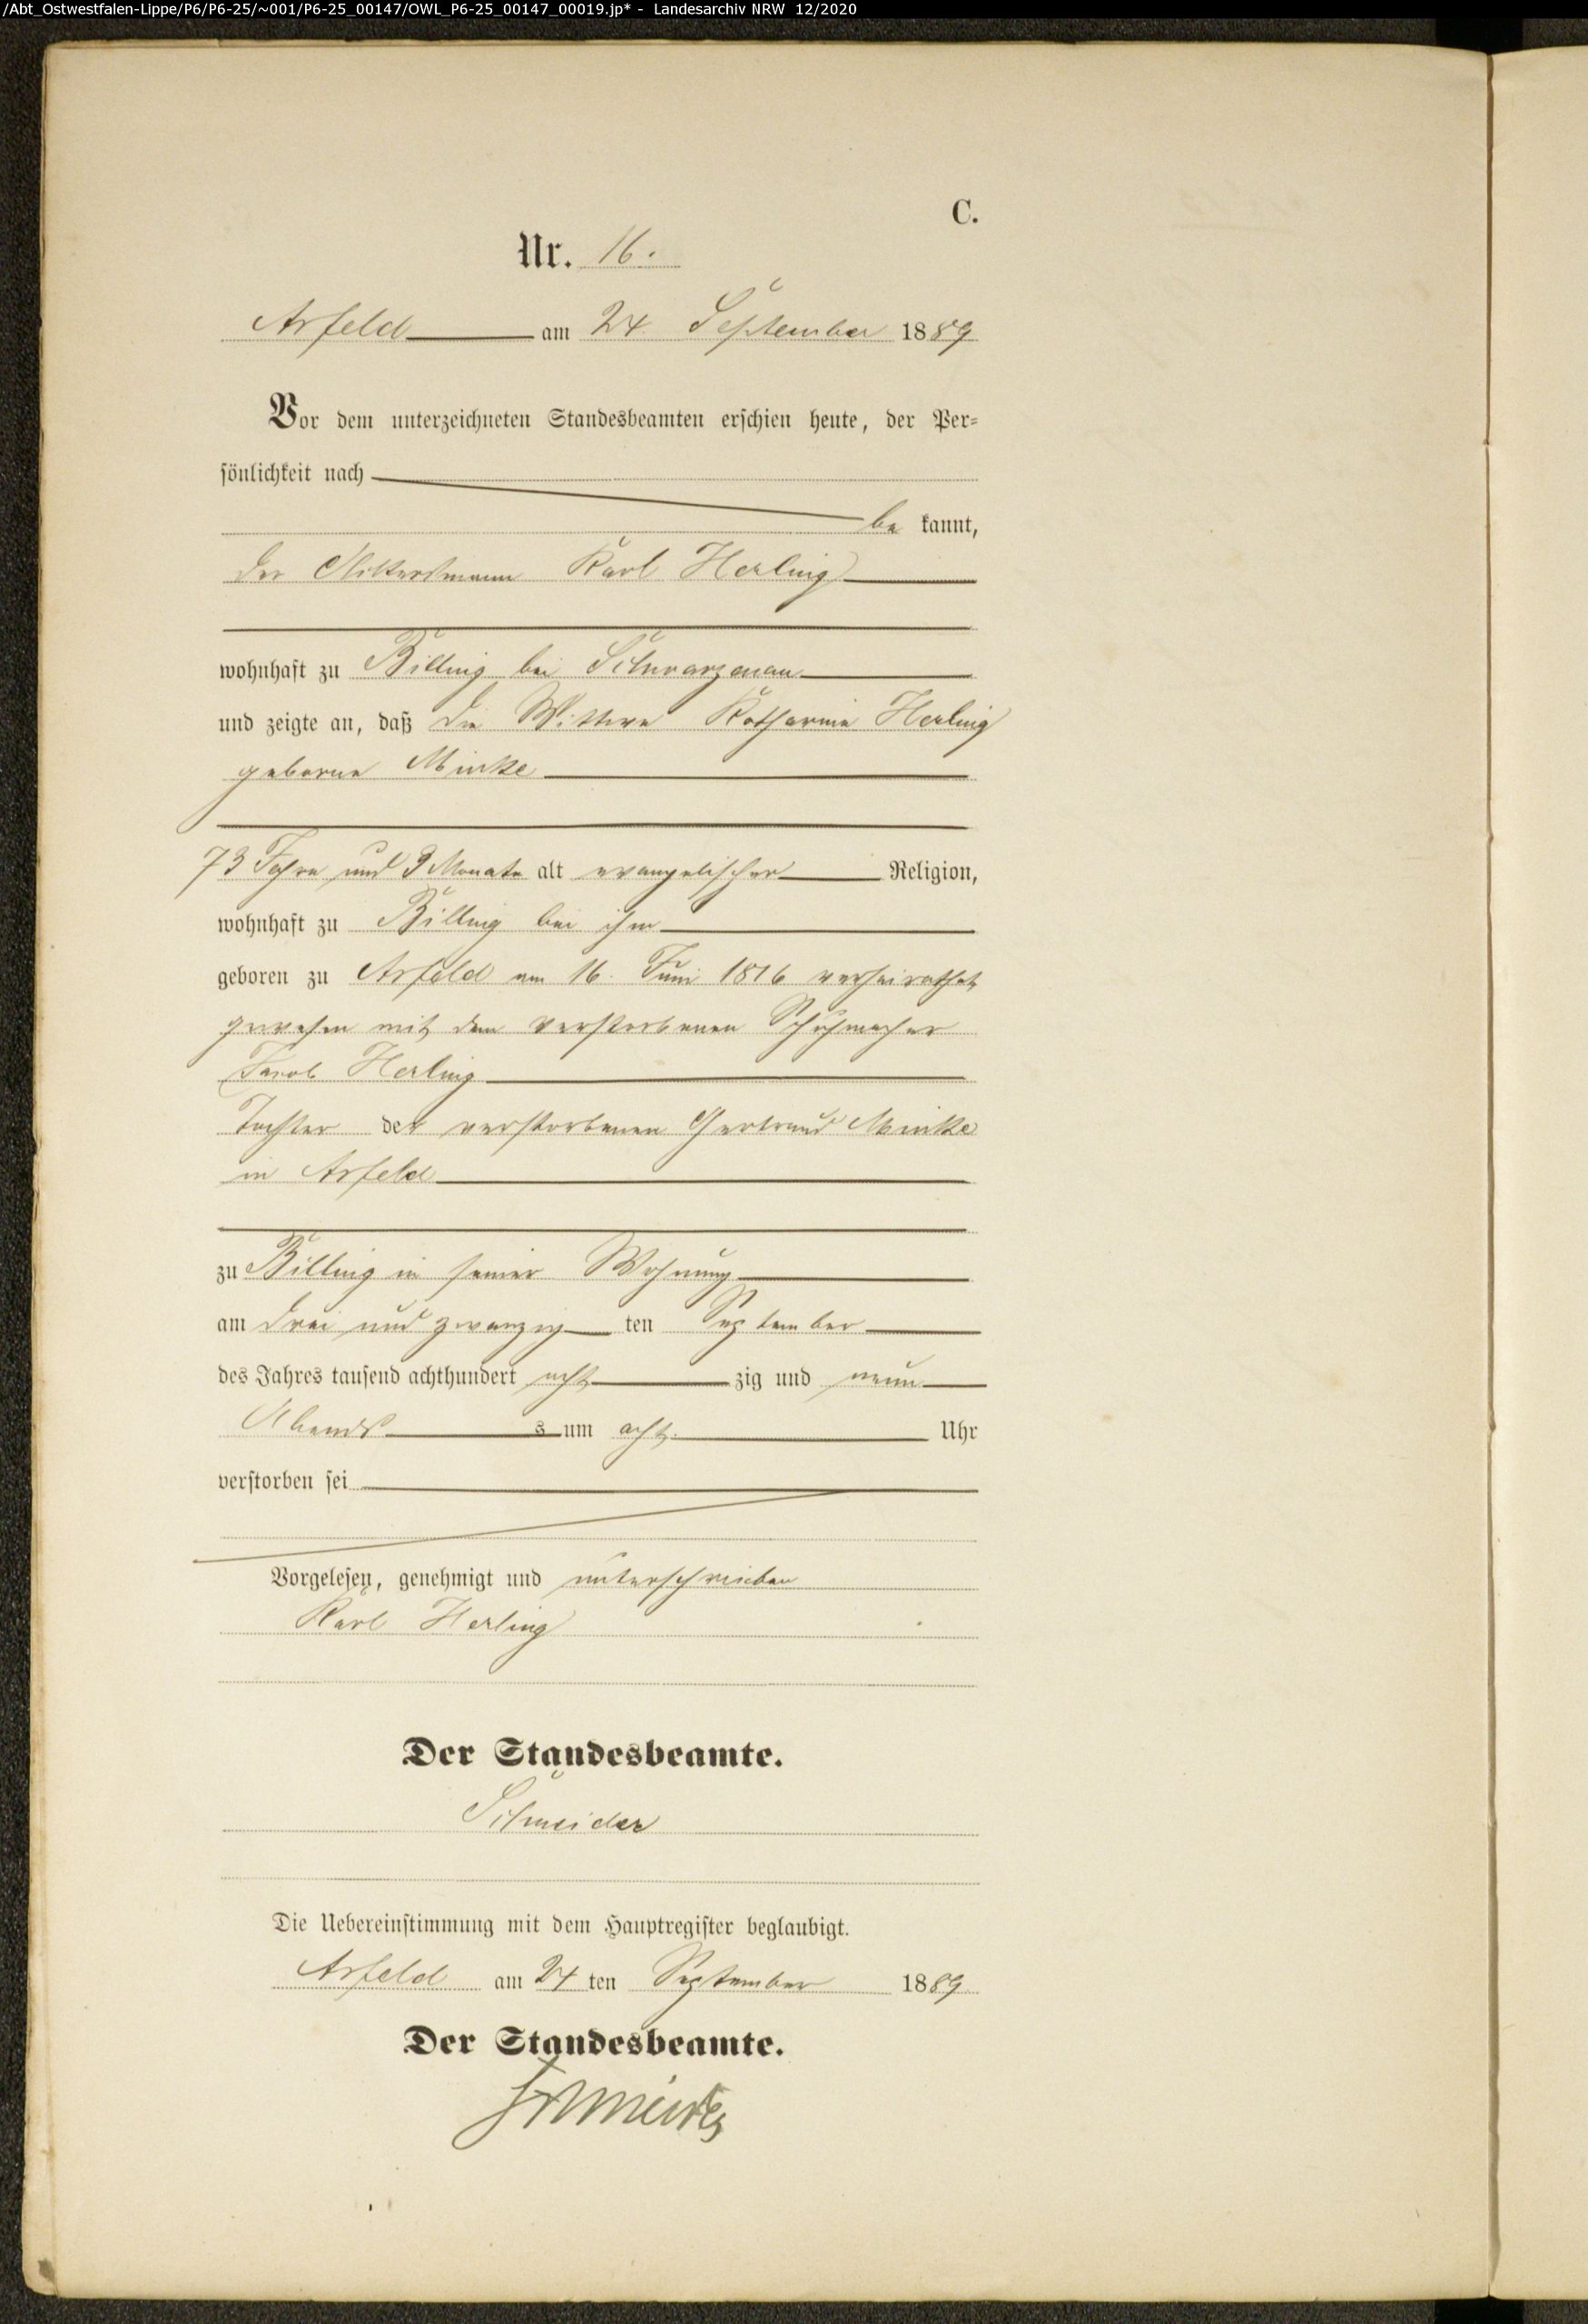 /Abt_Ostwestfalen-Lippe/P6/P6-25/~001/P6-25_00147/OWL_P6-25_00147_00019.jp* - Landesarchiv NRW 12/2020
C.
Nr. 16.
Arfeld am 24 September 1889
Vor dem unterzeichneten Standesbeamten erschien heute, der Per-
sönlichkeit nach
be kannt,
der Karl Herling
wohnhaft zu Billing bei Schwarzenau
und zeigte an, daß die Wittwe Katharina Herling
geborne Minke
73 Jahre und 3 Monate alt evangelischer Religion,
wohnhaft zu Billing bei ihm
geboren zu Arfeld am 16. Juni 1816 verheirathet
gewesen mit dem verstorbenen Schuhmacher
Jacob Herling
Tochter der verstorbenen Gertraud Minke
in Arfeld
zu Billing in seiner Wohnung
am drei und zwanzig ten September
des Jahres tausend achthundert acht zig und neun
Abends s um acht Uhr
verstorben sei
Vorgelesen, genehmigt und unterschrieben
Karl Herling
Der Standesbeamte.
Schneider
Die Uebereinstimmung mit dem Hauptregister beglaubigt.
Arfeld am 24 ten September 1889
Der Standesbeamte.
Schneider